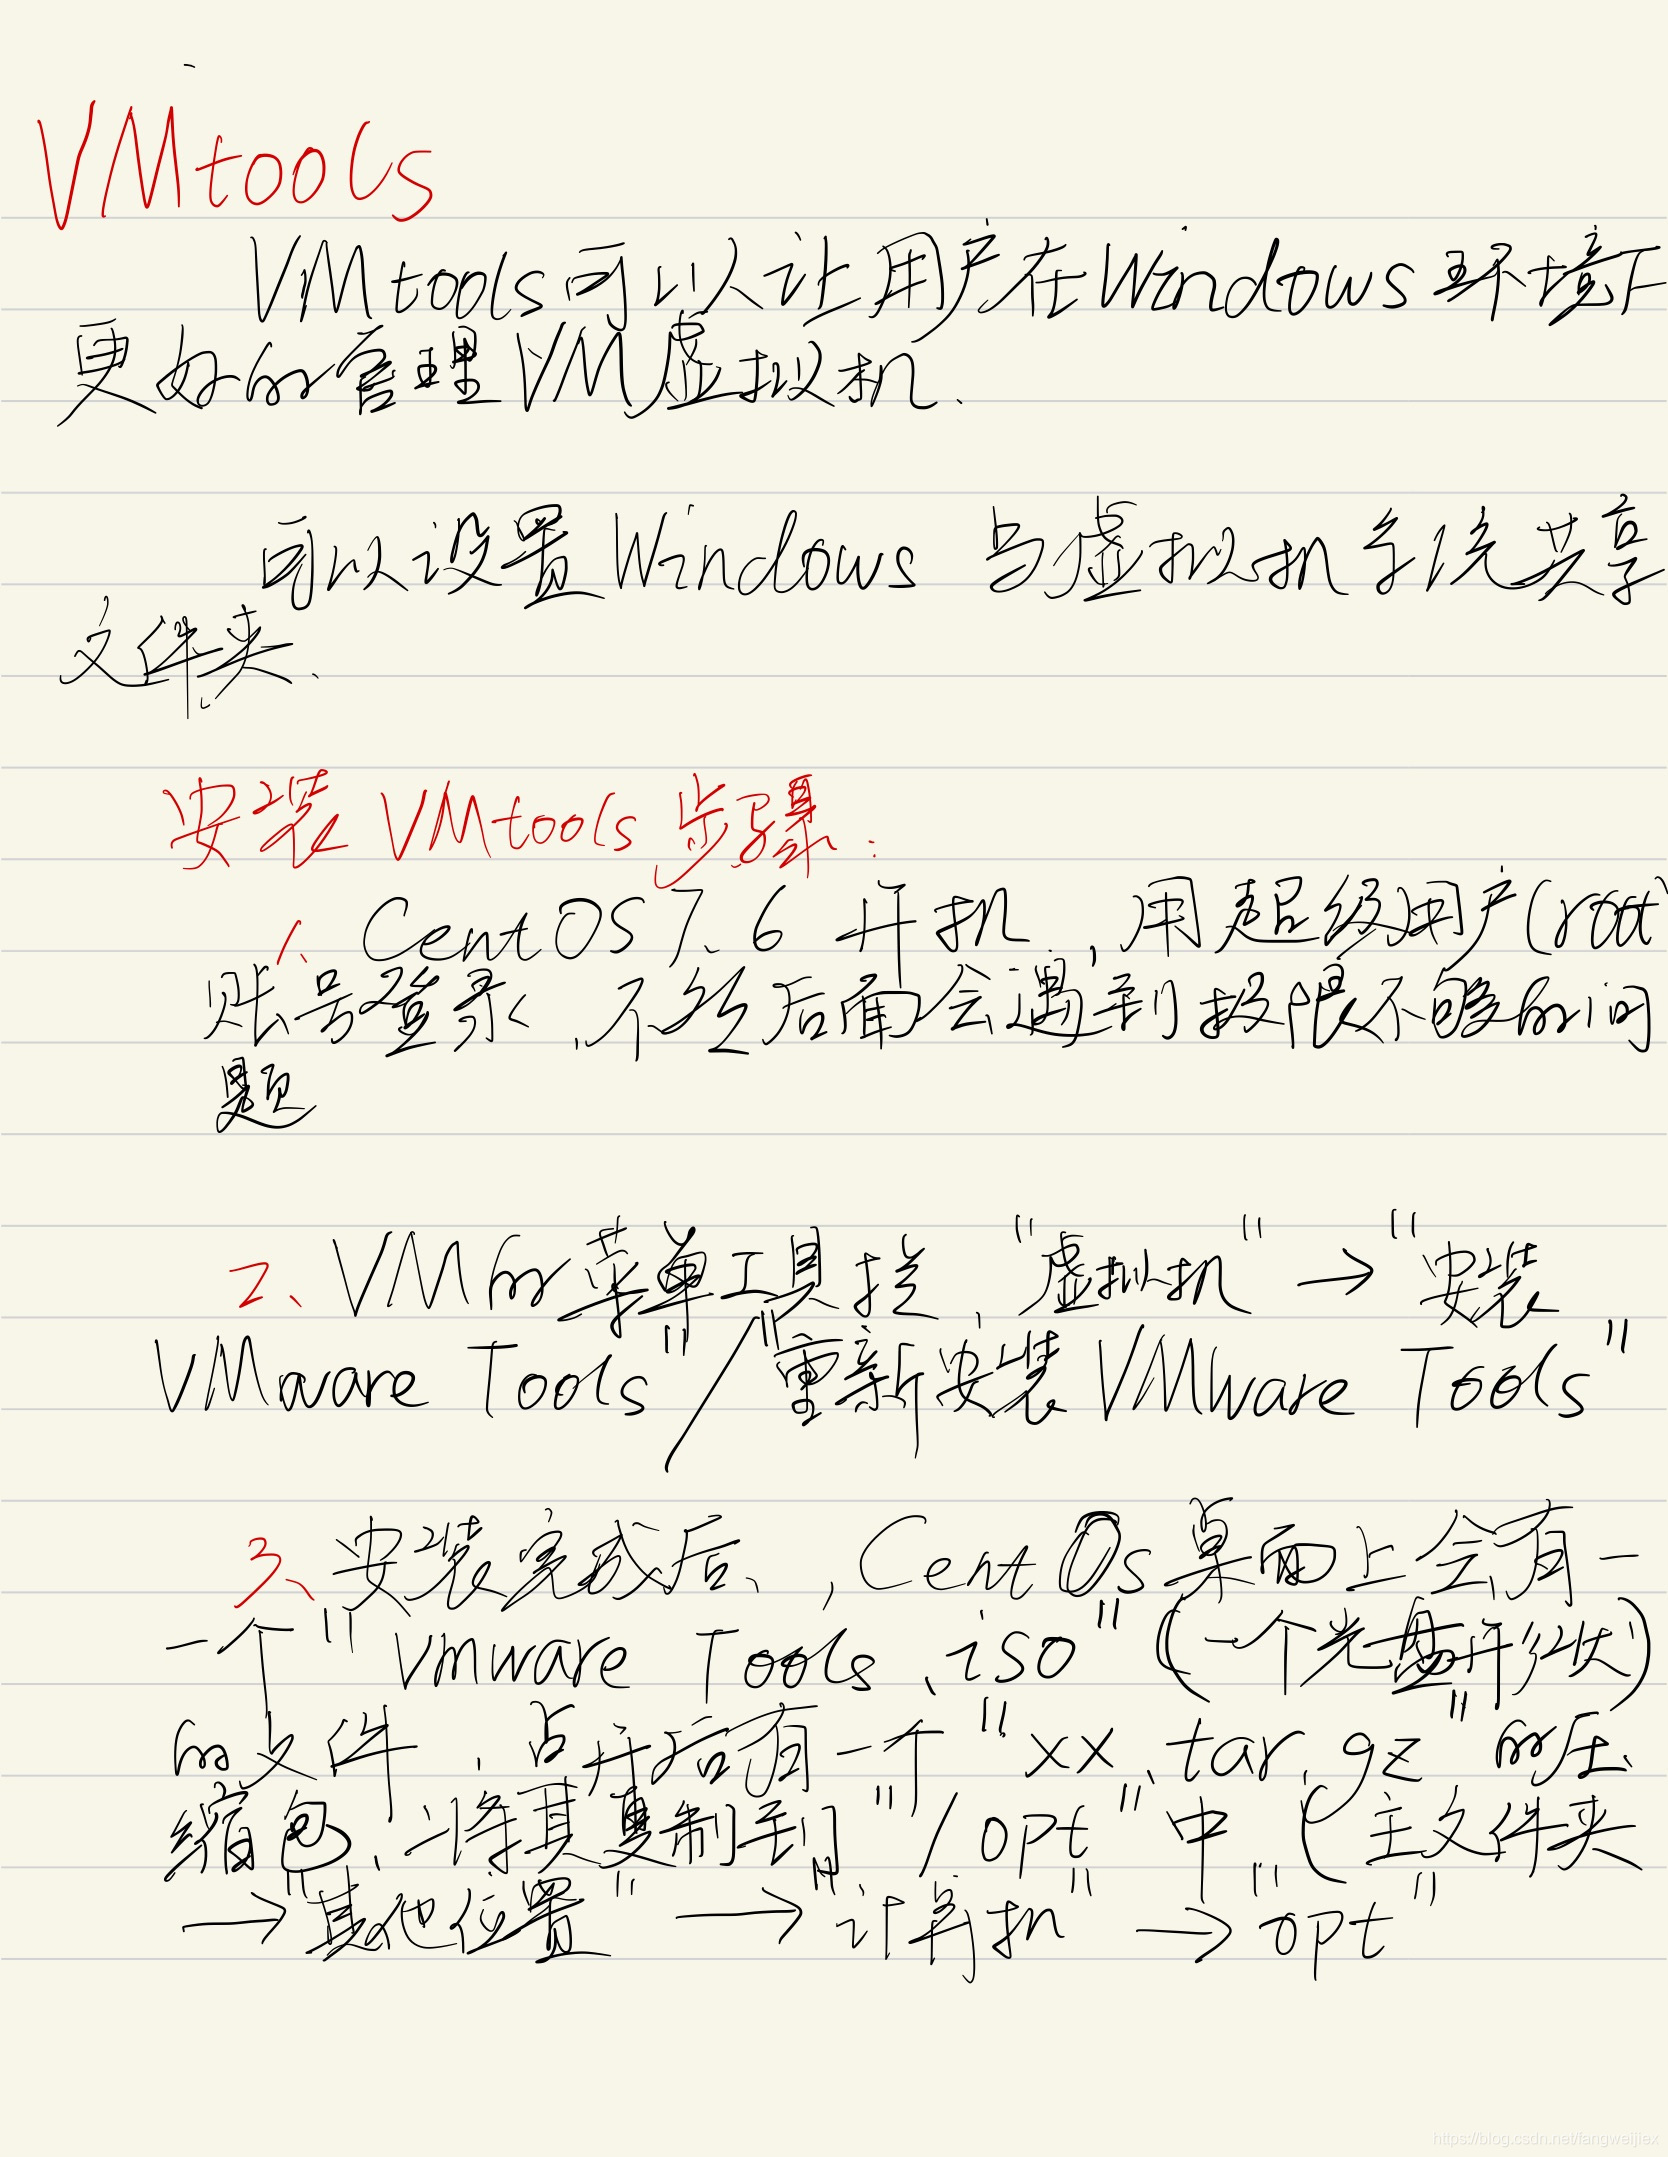 VMtools
VMtools可以让用户在Windows环境下
更好的管理VM虚拟机.
可以设置Windows 与虚拟机系统共享
文件夹.
安装VMtools步骤:
1、CentOS7.6 开机,用超级用户(root)
账号登录,不然后面会遇到权限不够的问
题
2、VM的菜单工具栏,"虚拟机"→"安装
VMware Tools"/"重新安装VMware Tools"
3、安装完成后、,CentOs桌面上会有一
一个"vmware Tools.iso"(一个光盘形状)
的文件,点开后有一个"xx.tar.gz"的压
缩包,将其复制到"/opt"中(主文件夹
→"其他位置"→"计算机"→"opt"
https://blog.csdn.net/fangweijiex